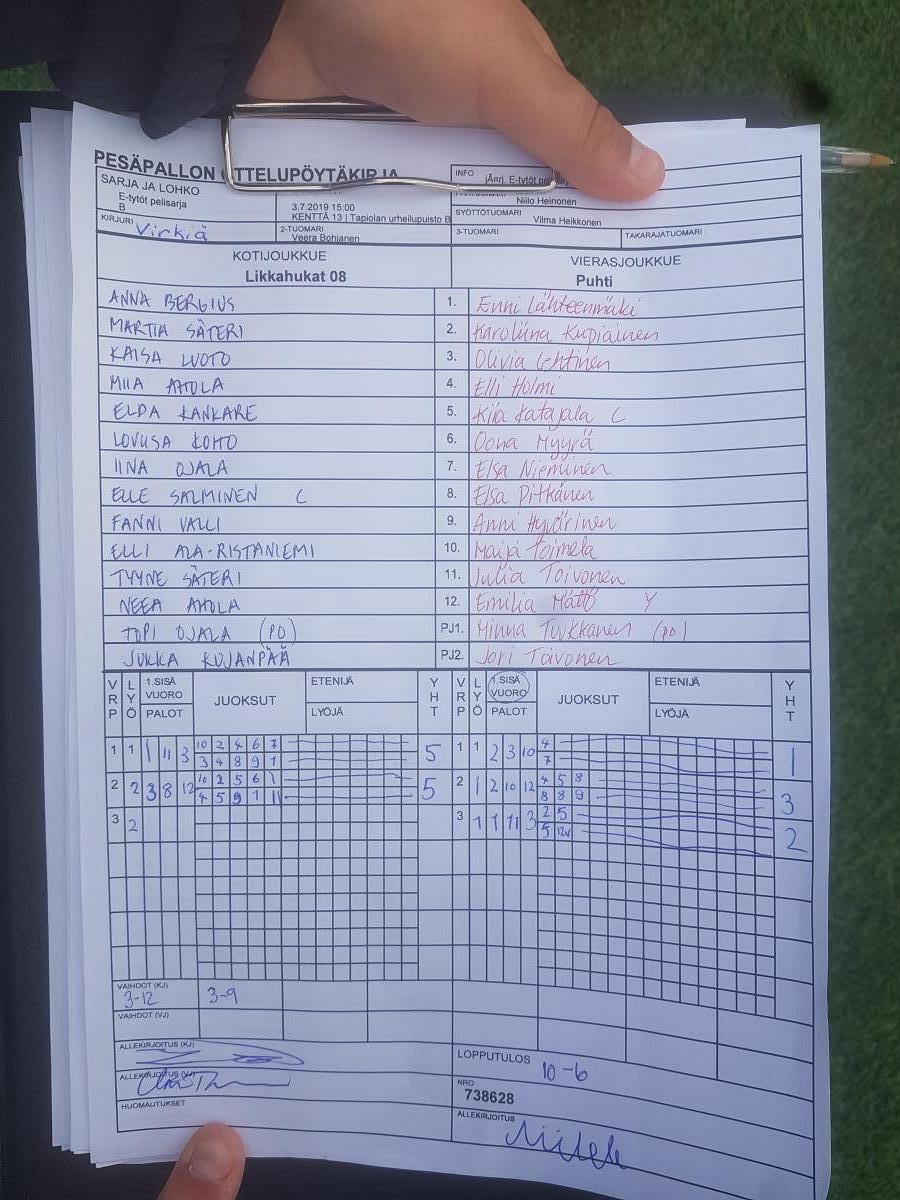 PESÄPALLON OTTELUPÖYTÄKIRJA
SARJA JA LOHKO
E-tytöt pelisarja
B
INFO
E-tytöt
3.7.2019 15:00
KENTTÄ 13 | Tapiolan urheilupuisto B
Niilo Heinonen
SYÖTTÖTUOMARI
Vilma Heikkonen
KIRJURI
Virkiä
2-TUOMARI
Veera Bohjanen
3-TUOMARI
TAKARAJATUOMARI
KOTIJOUKKUE VIERASJOUKKUE
Likkahukat 08 Puhti
ANNA BERGIUS 1. Enni Lähteenmäki
MARTTA SÄTERI 2. Karoliina Kupiainen
KAISA LUOTO 3. Olivia Lehtinen
MIIA AHOLA 4. Elli Holmi
ELDA KANKARE 5. Kiia Katajala C
LOVIISA KOHO 6. Oona Myyrä
IINA OJALA 7. Elsa Nieminen
ELLE SALMINEN C 8. Elsa Pitkänen
FANNI VALLI 9. Anni Hyvärinen
ELLI ALA-RISTANIEMI 10. Maija Toimela
TYYNE SÄTERI 11. Julia Toivonen
NEEA AHOLA 12. Emilia Mättö Y
TOPI OJALA (PO) PJ1. Minna Tuukkanen (po)
JUKKA KUJANPÄÄ PJ2. Jori Toivonen
VRP LYÖ 1.SISÄ VUORO PALOT JUOKSUT ETENIJÄ LYÖJÄ YHT VRP LYÖ 1.SISÄ VUORO PALOT JUOKSUT ETENIJÄ LYÖJÄ YHT
1 1 1 11 3 10 2 4 6 7 5 1 1 2 3 10 4 1
3 4 8 9 1 7
2 2 3 8 12 10 2 5 6 1 5 2 1 2 10 12 4 5 8 3
4 5 9 1 11 8 8 9
3 2 3 1 1 11 3 2 5 2
5 12
VAIHDOT (KJ)
3-12 3-9
VAIHDOT (VJ)
ALLEKIRJOITUS (KJ)
LOPPUTULOS
10-6
ALLEKIRJOITUS (VJ)
NRO
738628
HUOMAUTUKSET
ALLEKIRJOITUS